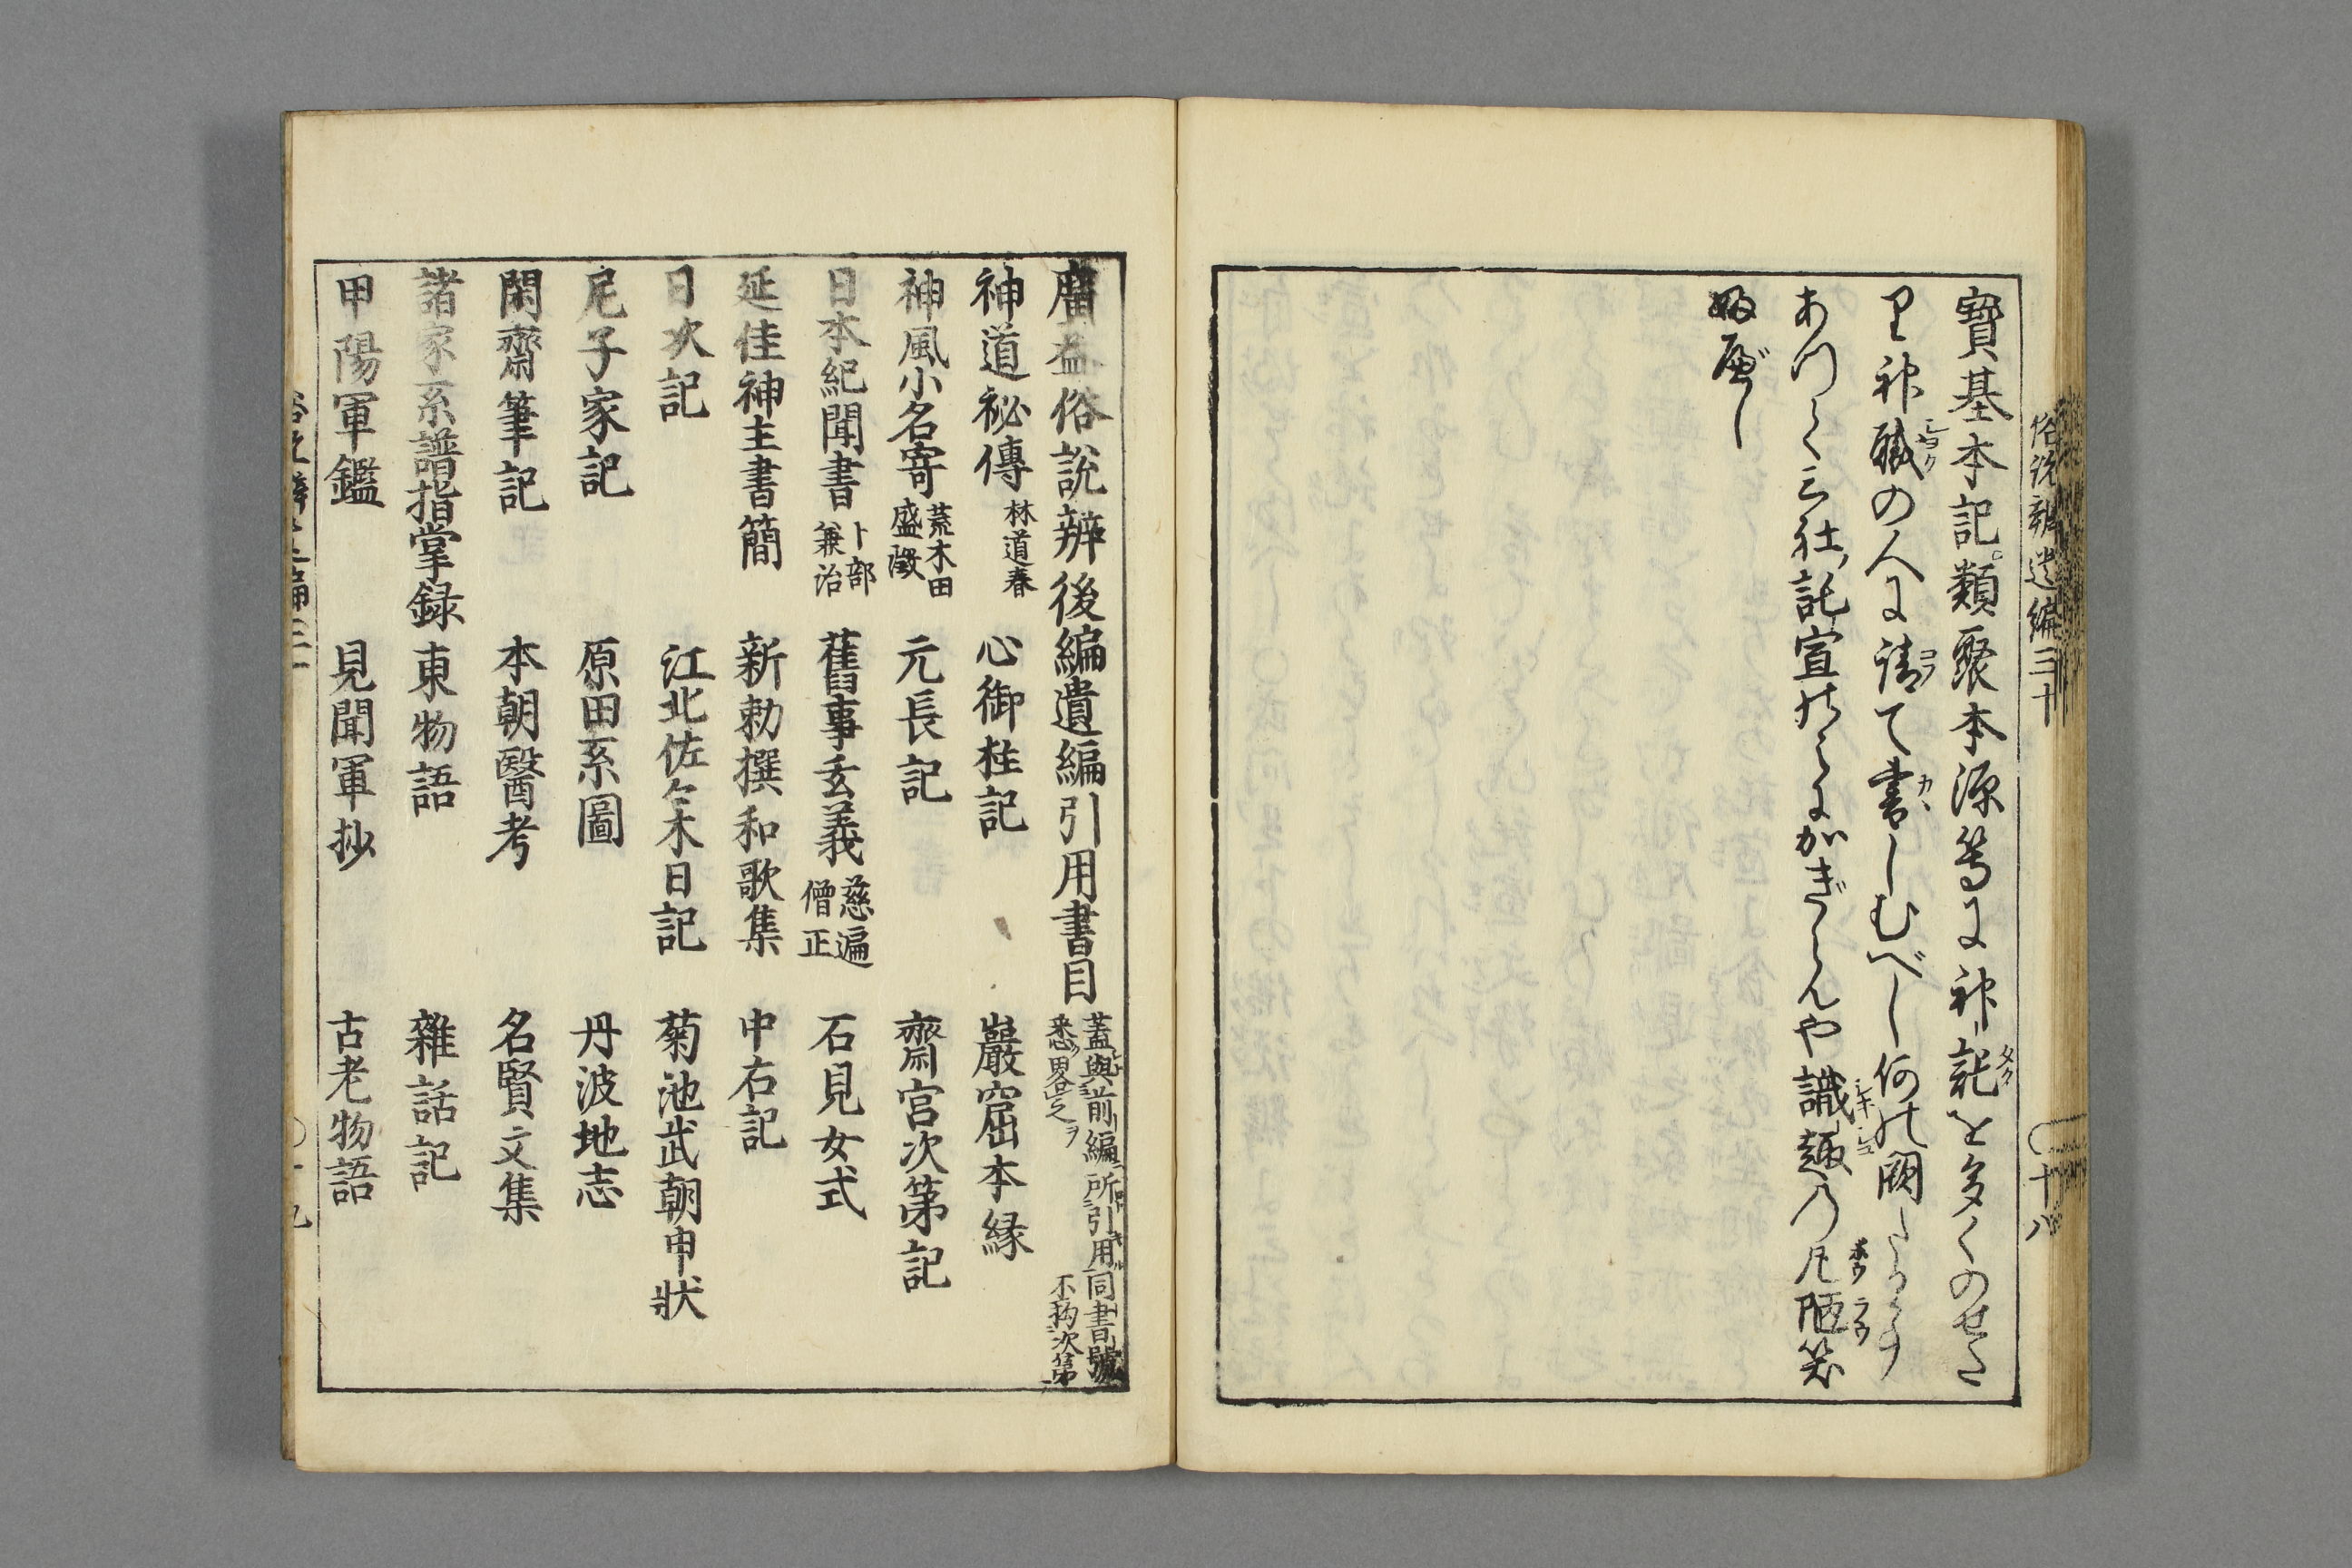 俗説辨遺編三十 〇十八
寶基本記。類聚本源等に神託を多くのせた
り神職の人に請て書しむべし何の闕たる事
ありて三社託宣のみにかぎらんや識趣の凡陋笑
ふべし
廣益俗說辨後編遺編引用書目 蓋與前編所引用同書號悉畧之ヲ 不拘次第
神道祕傳 林道春 心御柱記 巖窟本縁
神風小名寄 荒木田盛澂 元長記 齋宮次第記
日本紀聞書 卜部兼治 舊事玄義 慈遍僧正 石見女式
延佳神主書簡 新勅撰和歌集 中右記
日次記 江北佐々木日記 菊池武朝申狀
尼子家記 原田系圖 丹波地志
閑齋筆記 本朝醫考 名賢文集
諸家系譜指掌録 東物語 雜話記
甲陽軍鑑 見聞軍抄 古老物語